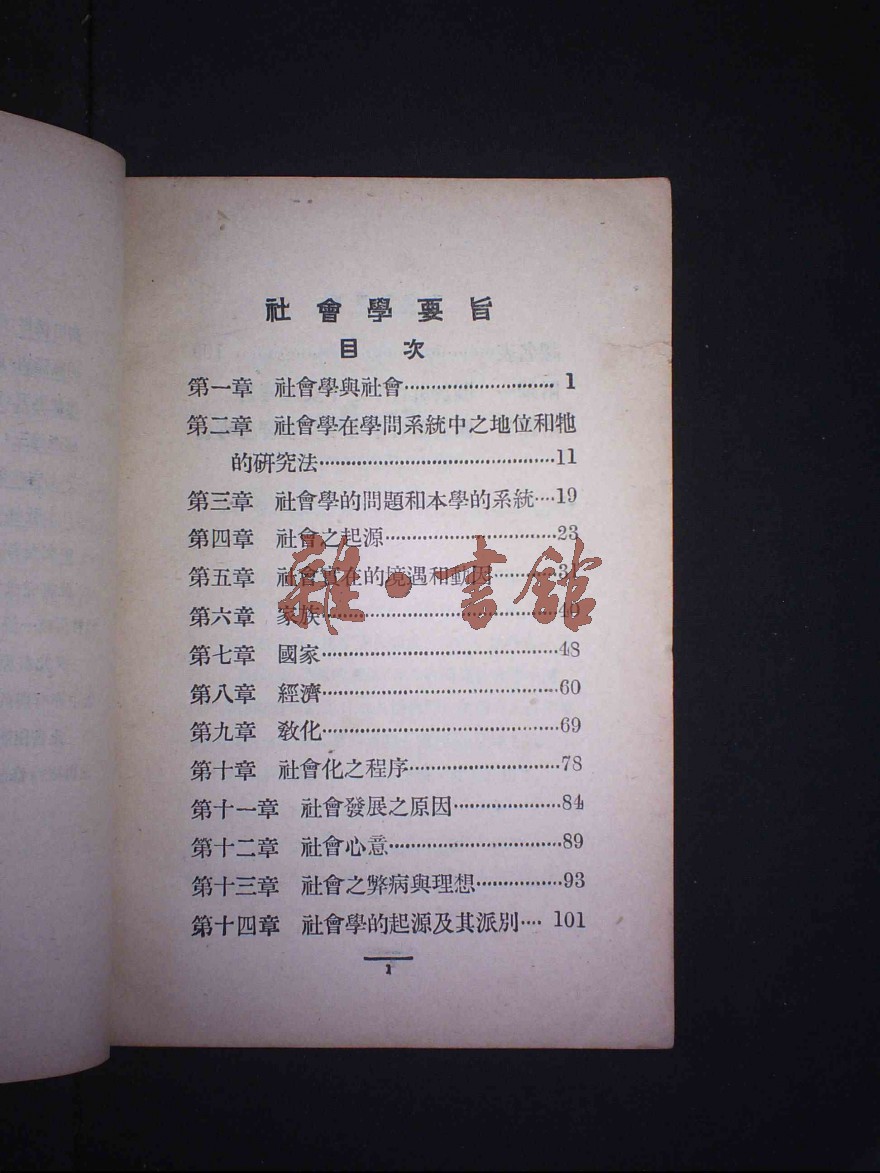 社會學要旨
目次
第一章 社會學與社會…………………………1
第二章 社會學在學問系統中之地位和牠
的研究法…………………………………11
第三章 社會學的問題和本學的系統…19
第四章 社會之起源…………………………23
第五章 社會實在的境遇和動因…………31
第六章 家族…………………………………40
第七章 國家…………………………………48
第八章 經濟…………………………………60
第九章 敎化…………………………………69
第十章 社會化之程序……………………78
第十一章 社會發展之原因………………84
第十二章 社會心意………………………89
第十三章 社會之弊病與理想……………93
第十四章 社會學的起源及其派別…101
1
雜·書館